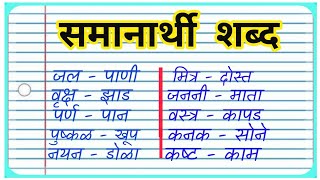 समानार्थी शब्द
जल - पाणी
वृक्ष - झाड
पर्ण - पान
पुष्कळ - खूप
नयन - डोळा
मित्र - दोस्त
जननी - माता
वस्त्र - कापड
कनक - सोने
कष्ट - काम